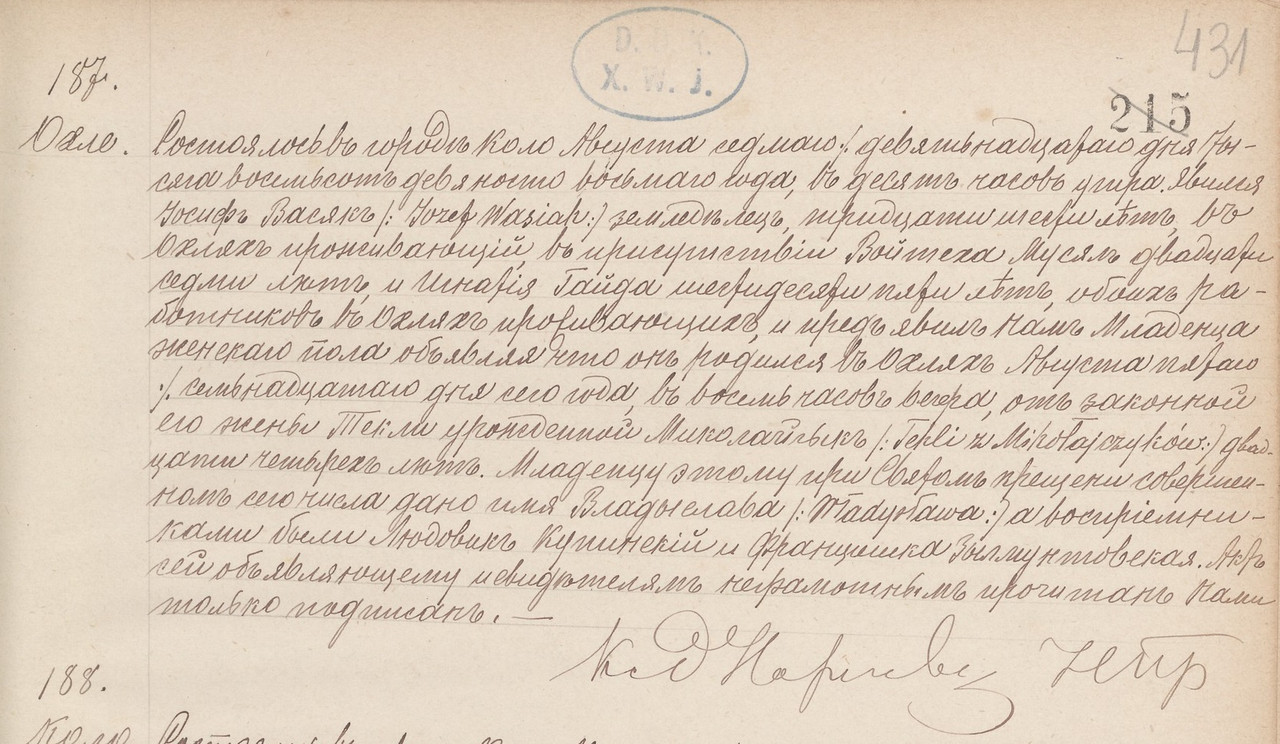 D. B. K.
X. W. J.
431
215
187.
Охле.
Состоялось въ городѣ Коло Августа седмаго /: девятьнадцатаго дня Ты-
сяга восемьсотъ девяносто восьмаго года, въ десятъ часовъ утра. Явился
Іосифъ Васякъ /: Jozef Wasiak :/ земледѣлецъ, тридцати шести лѣтъ, въ
Охляхъ проживающій, въ присутствіи Войтеха Мусялъ двадцати
седми лѣтъ, и Игнатія Гайда шестидесяти пяти лѣтъ, обоихъ ра-
ботниковъ въ Охляхъ проживающихъ, и предъявилъ намъ Младенца
женскаго пола объявляя что онъ родился въ Охляхъ Августа пятаго
:/. семьнадцатаго дня сего года, въ восемь часовъ вечера, отъ законной
его жены Текли урожденной Миколайчыкъ /: Tekli z Mikołajczyków :/ двад-
цати четырехъ лѣтъ. Младенцу этому при Святомъ крещени совершен-
номъ сего числа дано имя Владыслава /: Władysława :/ а воспріемни-
ками были Людовикъ Купинскій и Францишка Зыгмунтовская. Актъ
сей объявляющему и свидѣтелямъ неграмотнымъ прочитанъ Нами
только подписанъ. —
188.
Коло